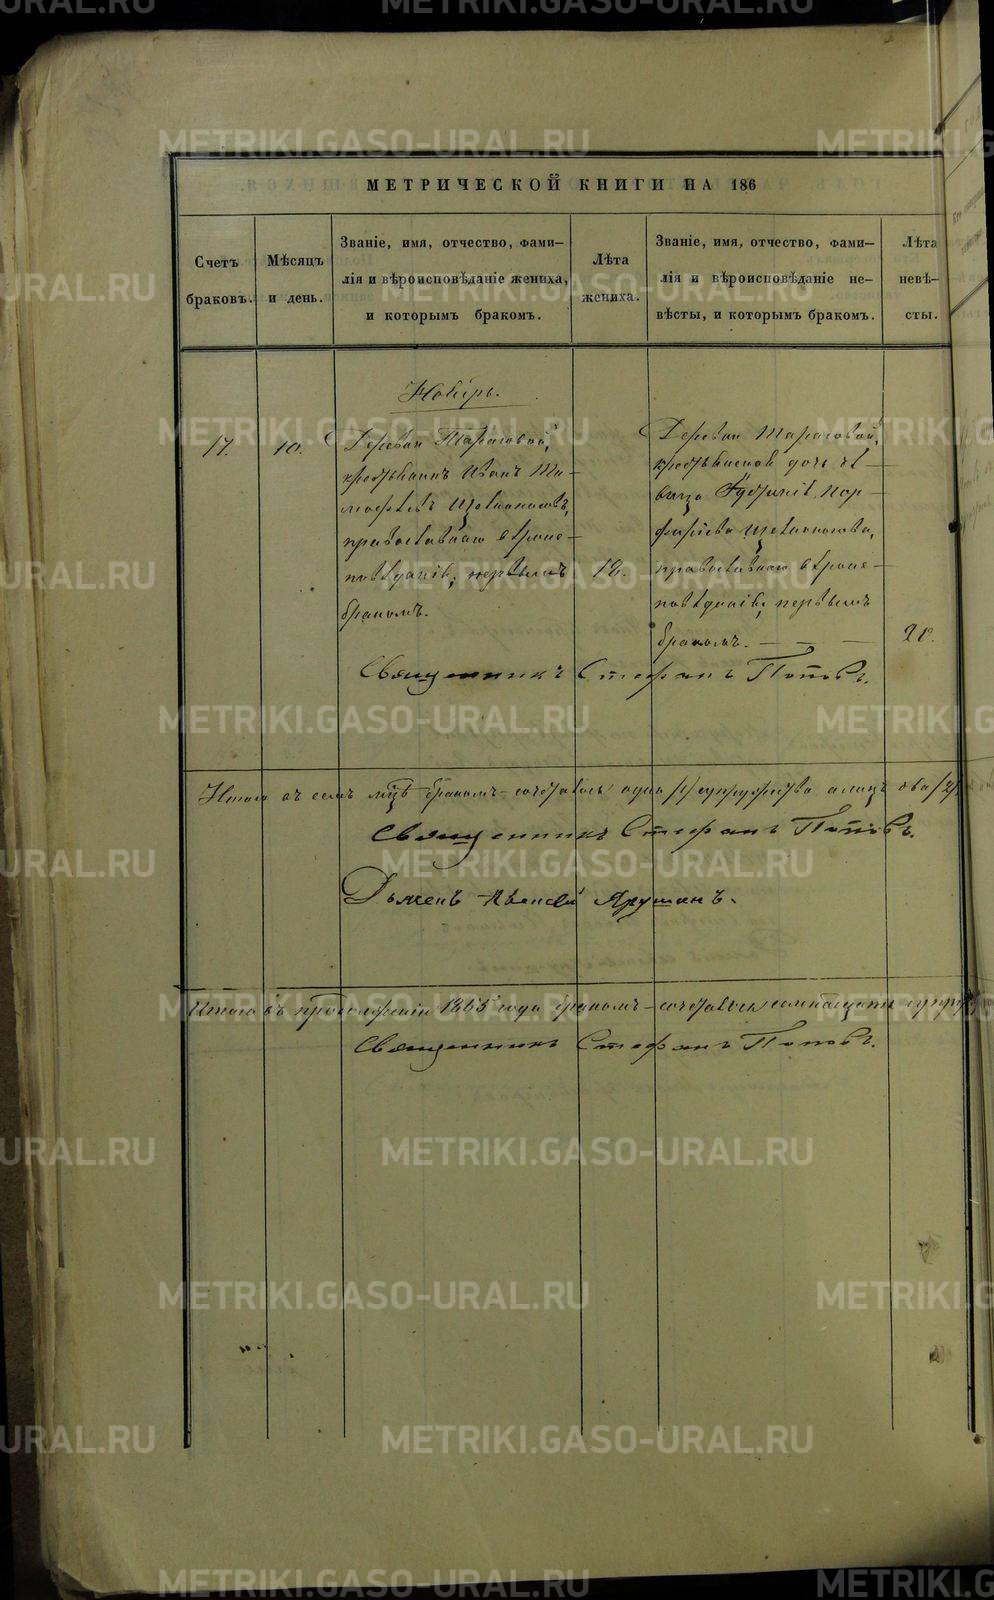 МЕТРИЧЕСКОЙ КНИГИ НА 186
Счетъ
браковъ.
Мѣсяцъ
и день.
Званіе, имя, отчество, фами-
лія и вѣроисповѣданіе жениха,
и которымъ бракомъ.
Лѣта
жениха.
Званіе, имя, отчество, фами-
лія и вѣроисповѣданіе не-
вѣсты, и которымъ бракомъ.
Лѣта
невѣ-
сты.
Ноябрь.
17.
10.
Деревни Тарасовой,
крестьянинъ Иванъ Ти-
мофѣевъ
православнаго вѣроис-
повѣданія, первымъ
бракомъ.
18.
Деревни Тарасовой,
крестьянская дочь дѣ-
вица Пор-
фирьева
православнаго вѣроис-
повѣданія, первымъ
бракомъ.
20.
Священникъ Стефанъ Поповъ.
Итого въ семъ м-цѣ бракомъ сочеталось одно /1/ супружество а лицъ два /2/.
Священникъ Стефанъ Поповъ.
Дьяконъ Алексѣй
Итого въ продолженіи 1865 года бракомъ сочеталось семнадцать
Священникъ Стефанъ Поповъ.
METRIKI.GASO-URAL.RU